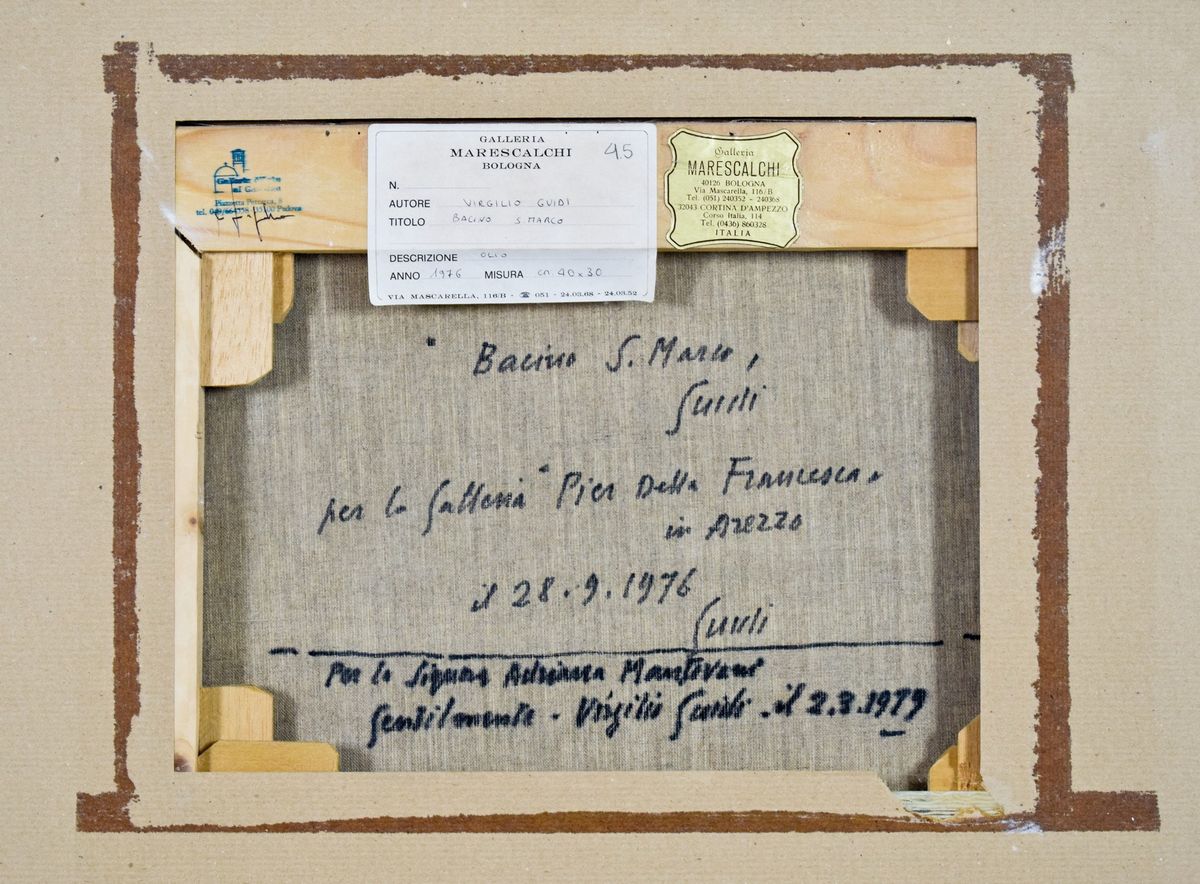 GALLERIA
MARESCALCHI
BOLOGNA
45
N.
AUTORE VIRGILIO GUIDI
TITOLO BACINO S. MARCO
DESCRIZIONE OLIO
ANNO 1976 MISURA cm 40x30
VIA MASCARELLA, 116/B - ☎ 051 - 24.03.68 - 24.03.52
Galleria
MARESCALCHI
40126 BOLOGNA
Via Mascarella, 116/B
Tel. (051) 240352 - 240368
32043 CORTINA D'AMPEZZO
Corso Italia, 114
Tel. (0436) 860328
ITALIA
Piazzetta
tel. Padova
" Bacino S. Marco,
Guidi
per la Galleria "Pier Della Francesca"
in Arezzo
il 28.9.1976
Guidi
Per la Signora Adriana Mantovani
Gentilmente - Virgilio Guidi. il 2.3.1979